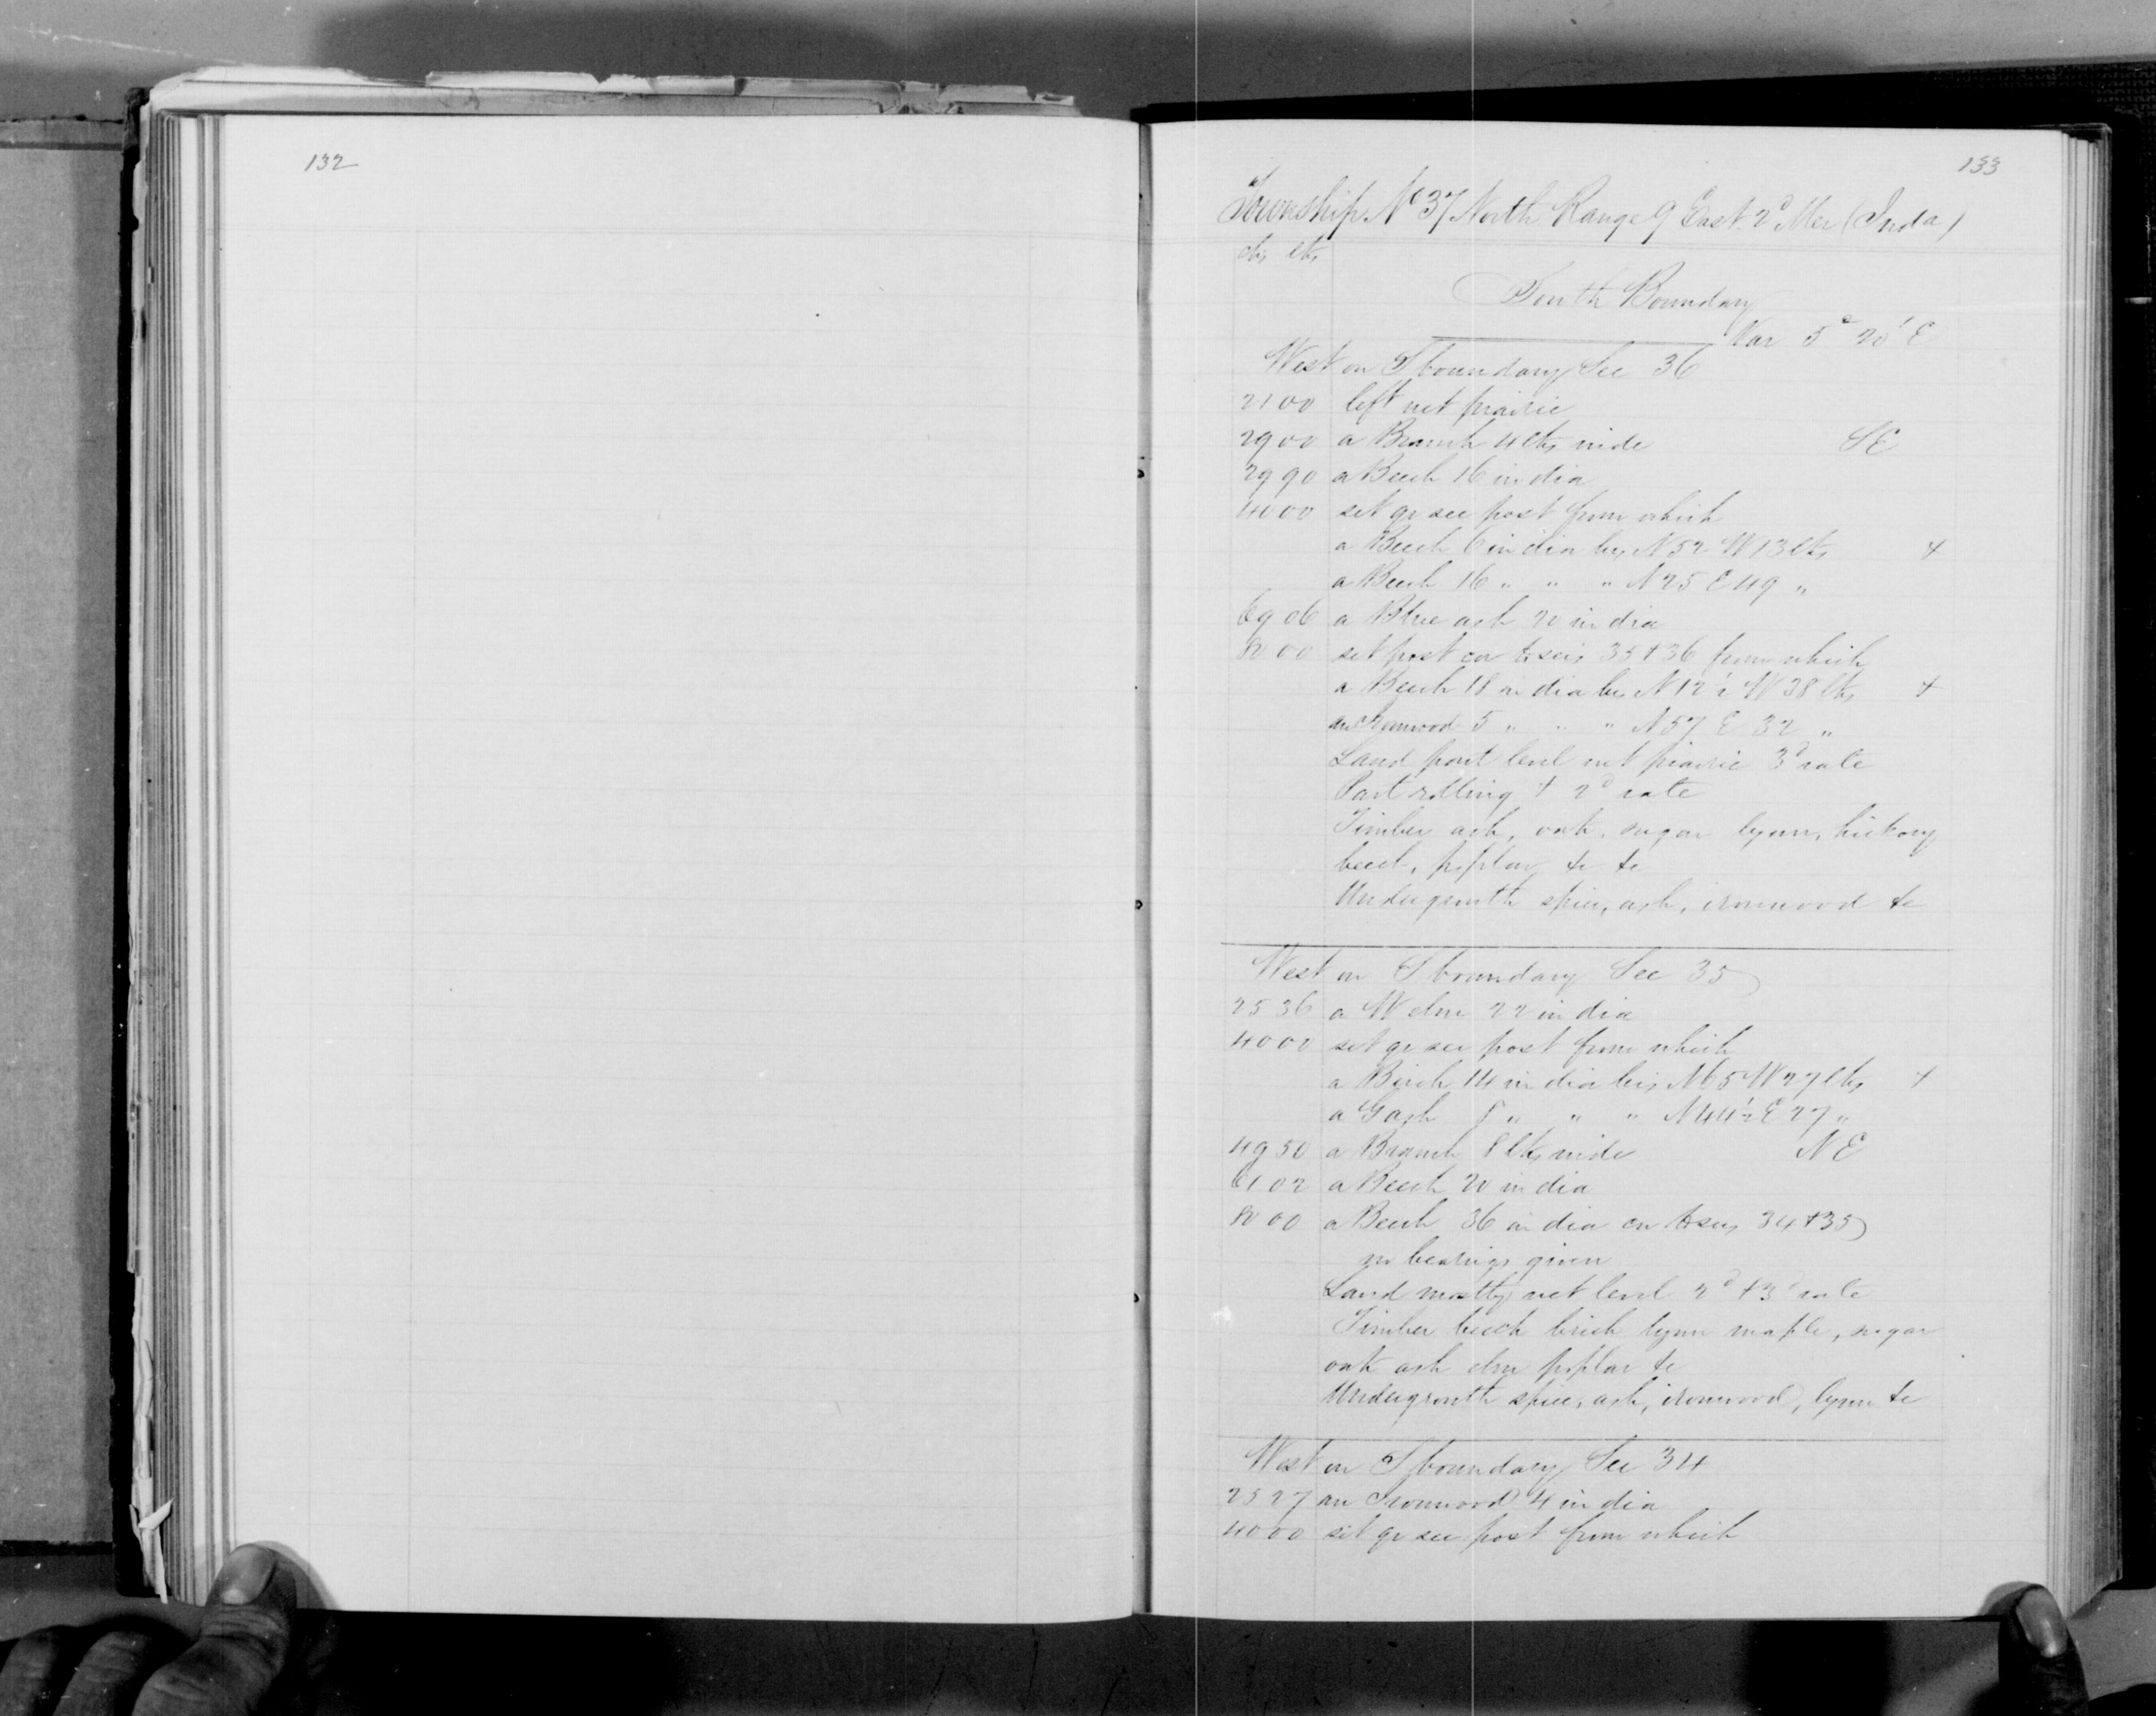 132
133
Township No 37 North Range 9 East 2d Mer (Inda)
chs lks
South Boundary
Var 5° 20' E
West on S boundary Sec 36
21 00 left wet prairie
29 00 a Branch 4 lks wide SE
29 90 a Beech 16 in dia
40 00 set qr sec post from which
a Beech 6 in dia brs N 52 W 13 lks +
a Beech 16 " " " N 25 E 49 "
69 06 a Blue ash 20 in dia
80 00 set post cor to secs 35 + 36 from which
a Beech 18 in dia brs N 12½ W 38 lks +
an Ironwood 5 " " " N 57 E 32 "
Land part level wet prairie 3d rate
Part rolling + 2d rate
Timber ash, oak, sugar lynn, hickory
beech, poplar &c &c
Undergrowth spice, ash, ironwood &c
West on S boundary Sec 35
25 36 a W elm 22 in dia
40 00 set qr sec post from which
a Birch 14 in dia brs N 65 W 27 lks +
a G ash 8 " " " N 44½ E 27 "
49 50 a Branch 8 lks wide NE
61 02 a Beech 20 in dia
80 00 a Beech 36 in dia cor to secs 34 + 35
no bearings given
Land mostly wet level 2d + 3d rate
Timber beech birch lynn maple, sugar
oak ash elm poplar &c
Undergrowth spice, ash, ironwood, lynn &c
West on S boundary Sec 34
25 27 an Ironwood 4 in dia
40 00 set qr sec post from which